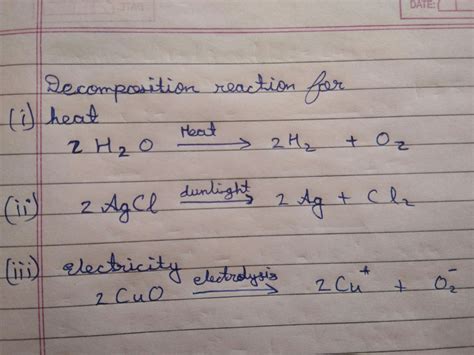 DATE:
Decomposition reaction for
(i) heat
2 H2O Heat → 2H2 + O2
(ii) 2 AgCl sunlight → 2 Ag + Cl2
(iii) electricity
2 CuO electrolysis → 2 Cu+ + O2-